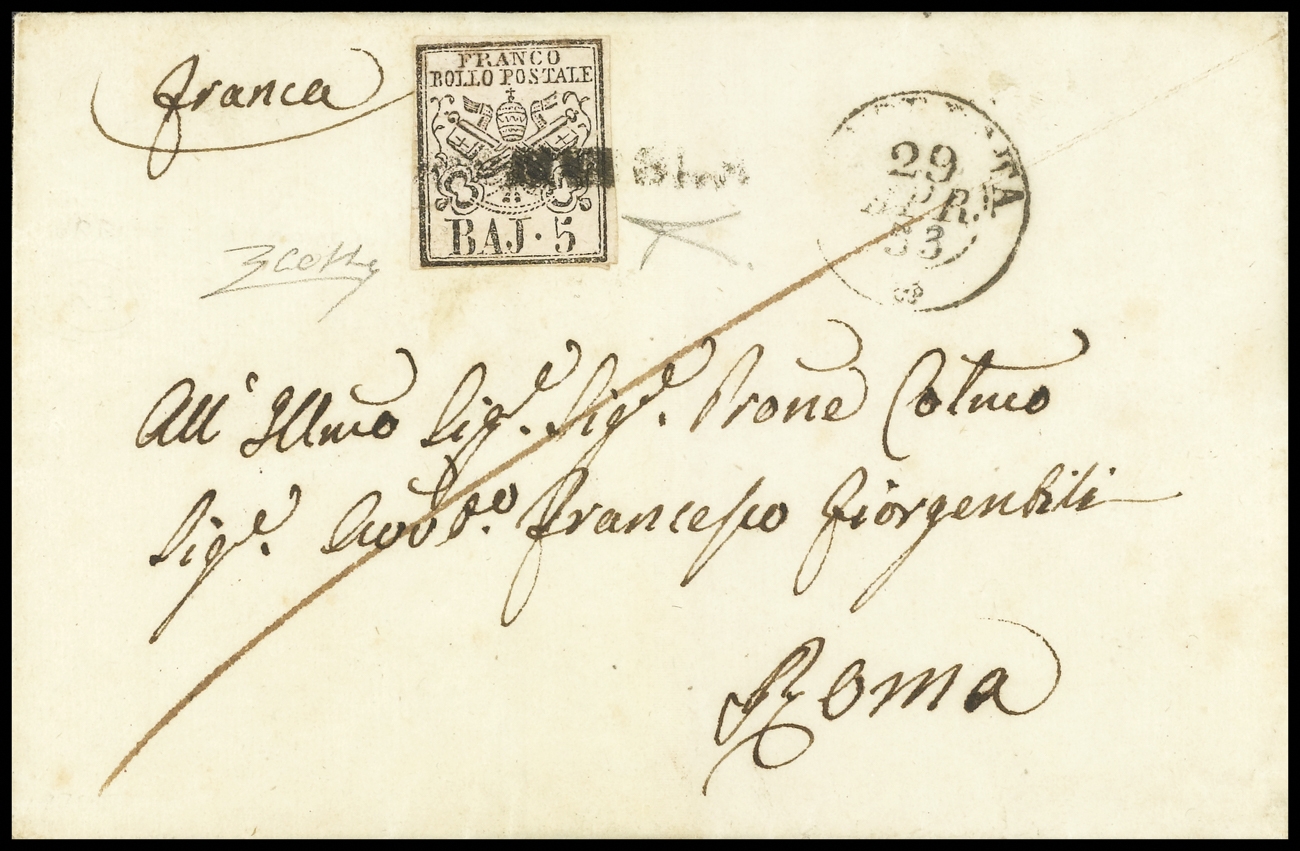 franca
FRANCO
BOLLO POSTALE
BAJ. 5
29
APR.
53
All' Illmo Sigr. Sigr. Prone Colmo
Sigr. Francesco Fiorgentili
Roma